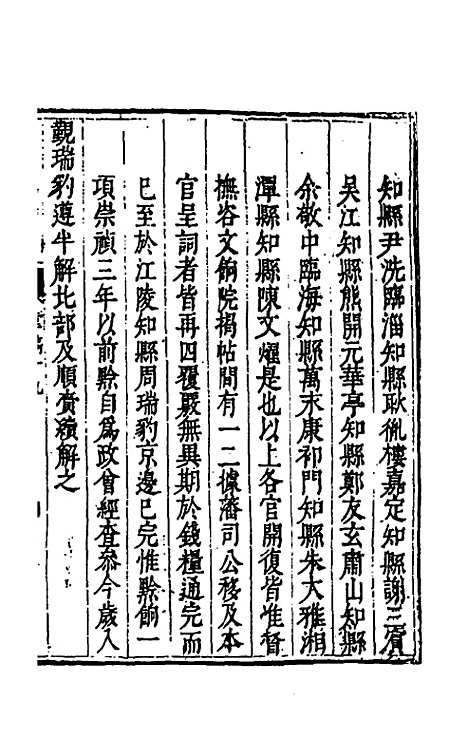 知縣尹洗臨淄知縣耿胤樓嘉定知縣謝三賓
吳江知縣熊開元華亭知縣鄭友玄蕭山知縣
余敬中臨海知縣萬末康祁門知縣朱大雅湘
潭縣知縣陳文燿是也以上各官開復皆惟督
撫咨文餉院揭帖間有一二據藩司公移及本
官呈詞者皆再四覆嚴無異期於錢糧通完而
已至於江陵知縣周瑞豹京邊已完惟黔餉一
項崇禎三年以前黔自爲政曾經查參今歲入
覲瑞豹遵半解比部及順賫續解之